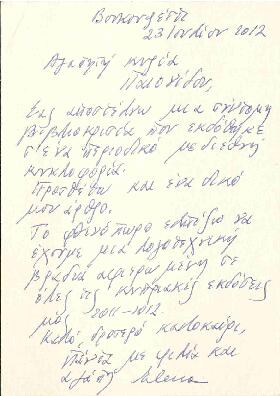 Βουκουρέστι
23 Ιουλίου 2012
Αγαπητή κυρία
Παιονίδου,
Σας αποστέλνω μια σύντομη
βιβλιοκρισία που εκδόθηκε
σ'ένα περιοδικό με διεθνή
κυκλοφορία.
Προσθέτω και ένα δικό
μου άρθρο.
Το φθινόπωρο ελπίζω να
έχουμε μια λογοτεχνική
βραδιά αφιερωμένη σε
όλες τις κυπριακές εκδόσεις
μας 2011-2012.
Καλό, δροσερό καλοκαίρι,
πάντα με φιλία και
αγάπη